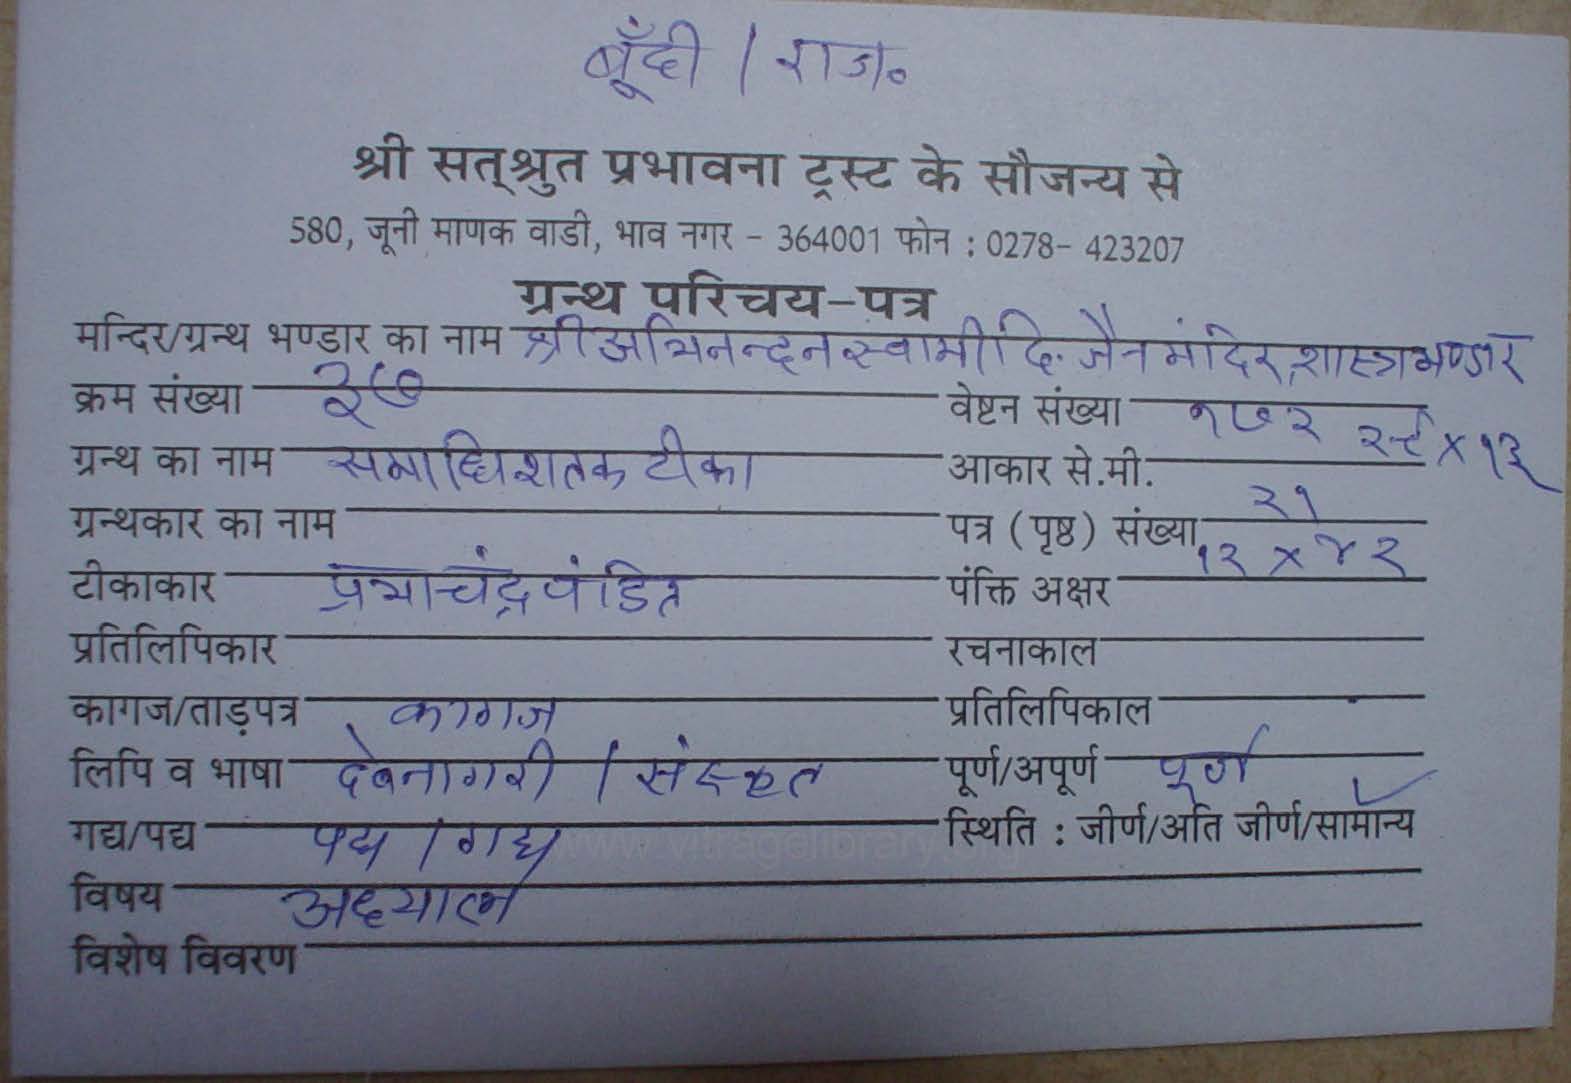 बूँदी / राज०
श्री सत्‌श्रुत प्रभावना ट्रस्ट के सौजन्य से
580, जूनी माणक वाडी, भाव नगर - 364001 फोन : 0278- 423207
ग्रन्थ परिचय-पत्र
मन्दिर/ग्रन्थ भण्डार का नाम श्री अभिनन्दन स्वामी दि. जैन मंदिर, शास्त्र भण्डार
क्रम संख्या ३७ वेष्टन संख्या १७२
ग्रन्थ का नाम समाधिशतक टीका आकार से.मी. २९ x १३
ग्रन्थकार का नाम पत्र (पृष्ठ) संख्या २१
टीकाकार प्रभाचंद्र पंडित पंक्ति अक्षर १२ x ४२
प्रतिलिपिकार रचनाकाल
कागज/ताड़पत्र कागज प्रतिलिपिकाल
लिपि व भाषा देवनागरी / संस्कृत पूर्ण/अपूर्ण पूर्ण
गद्य/पद्य पद्य / गद्य स्थिति : जीर्ण/अति जीर्ण/सामान्य
विषय अध्यात्म
विशेष विवरण
www.vitragelibrary.org